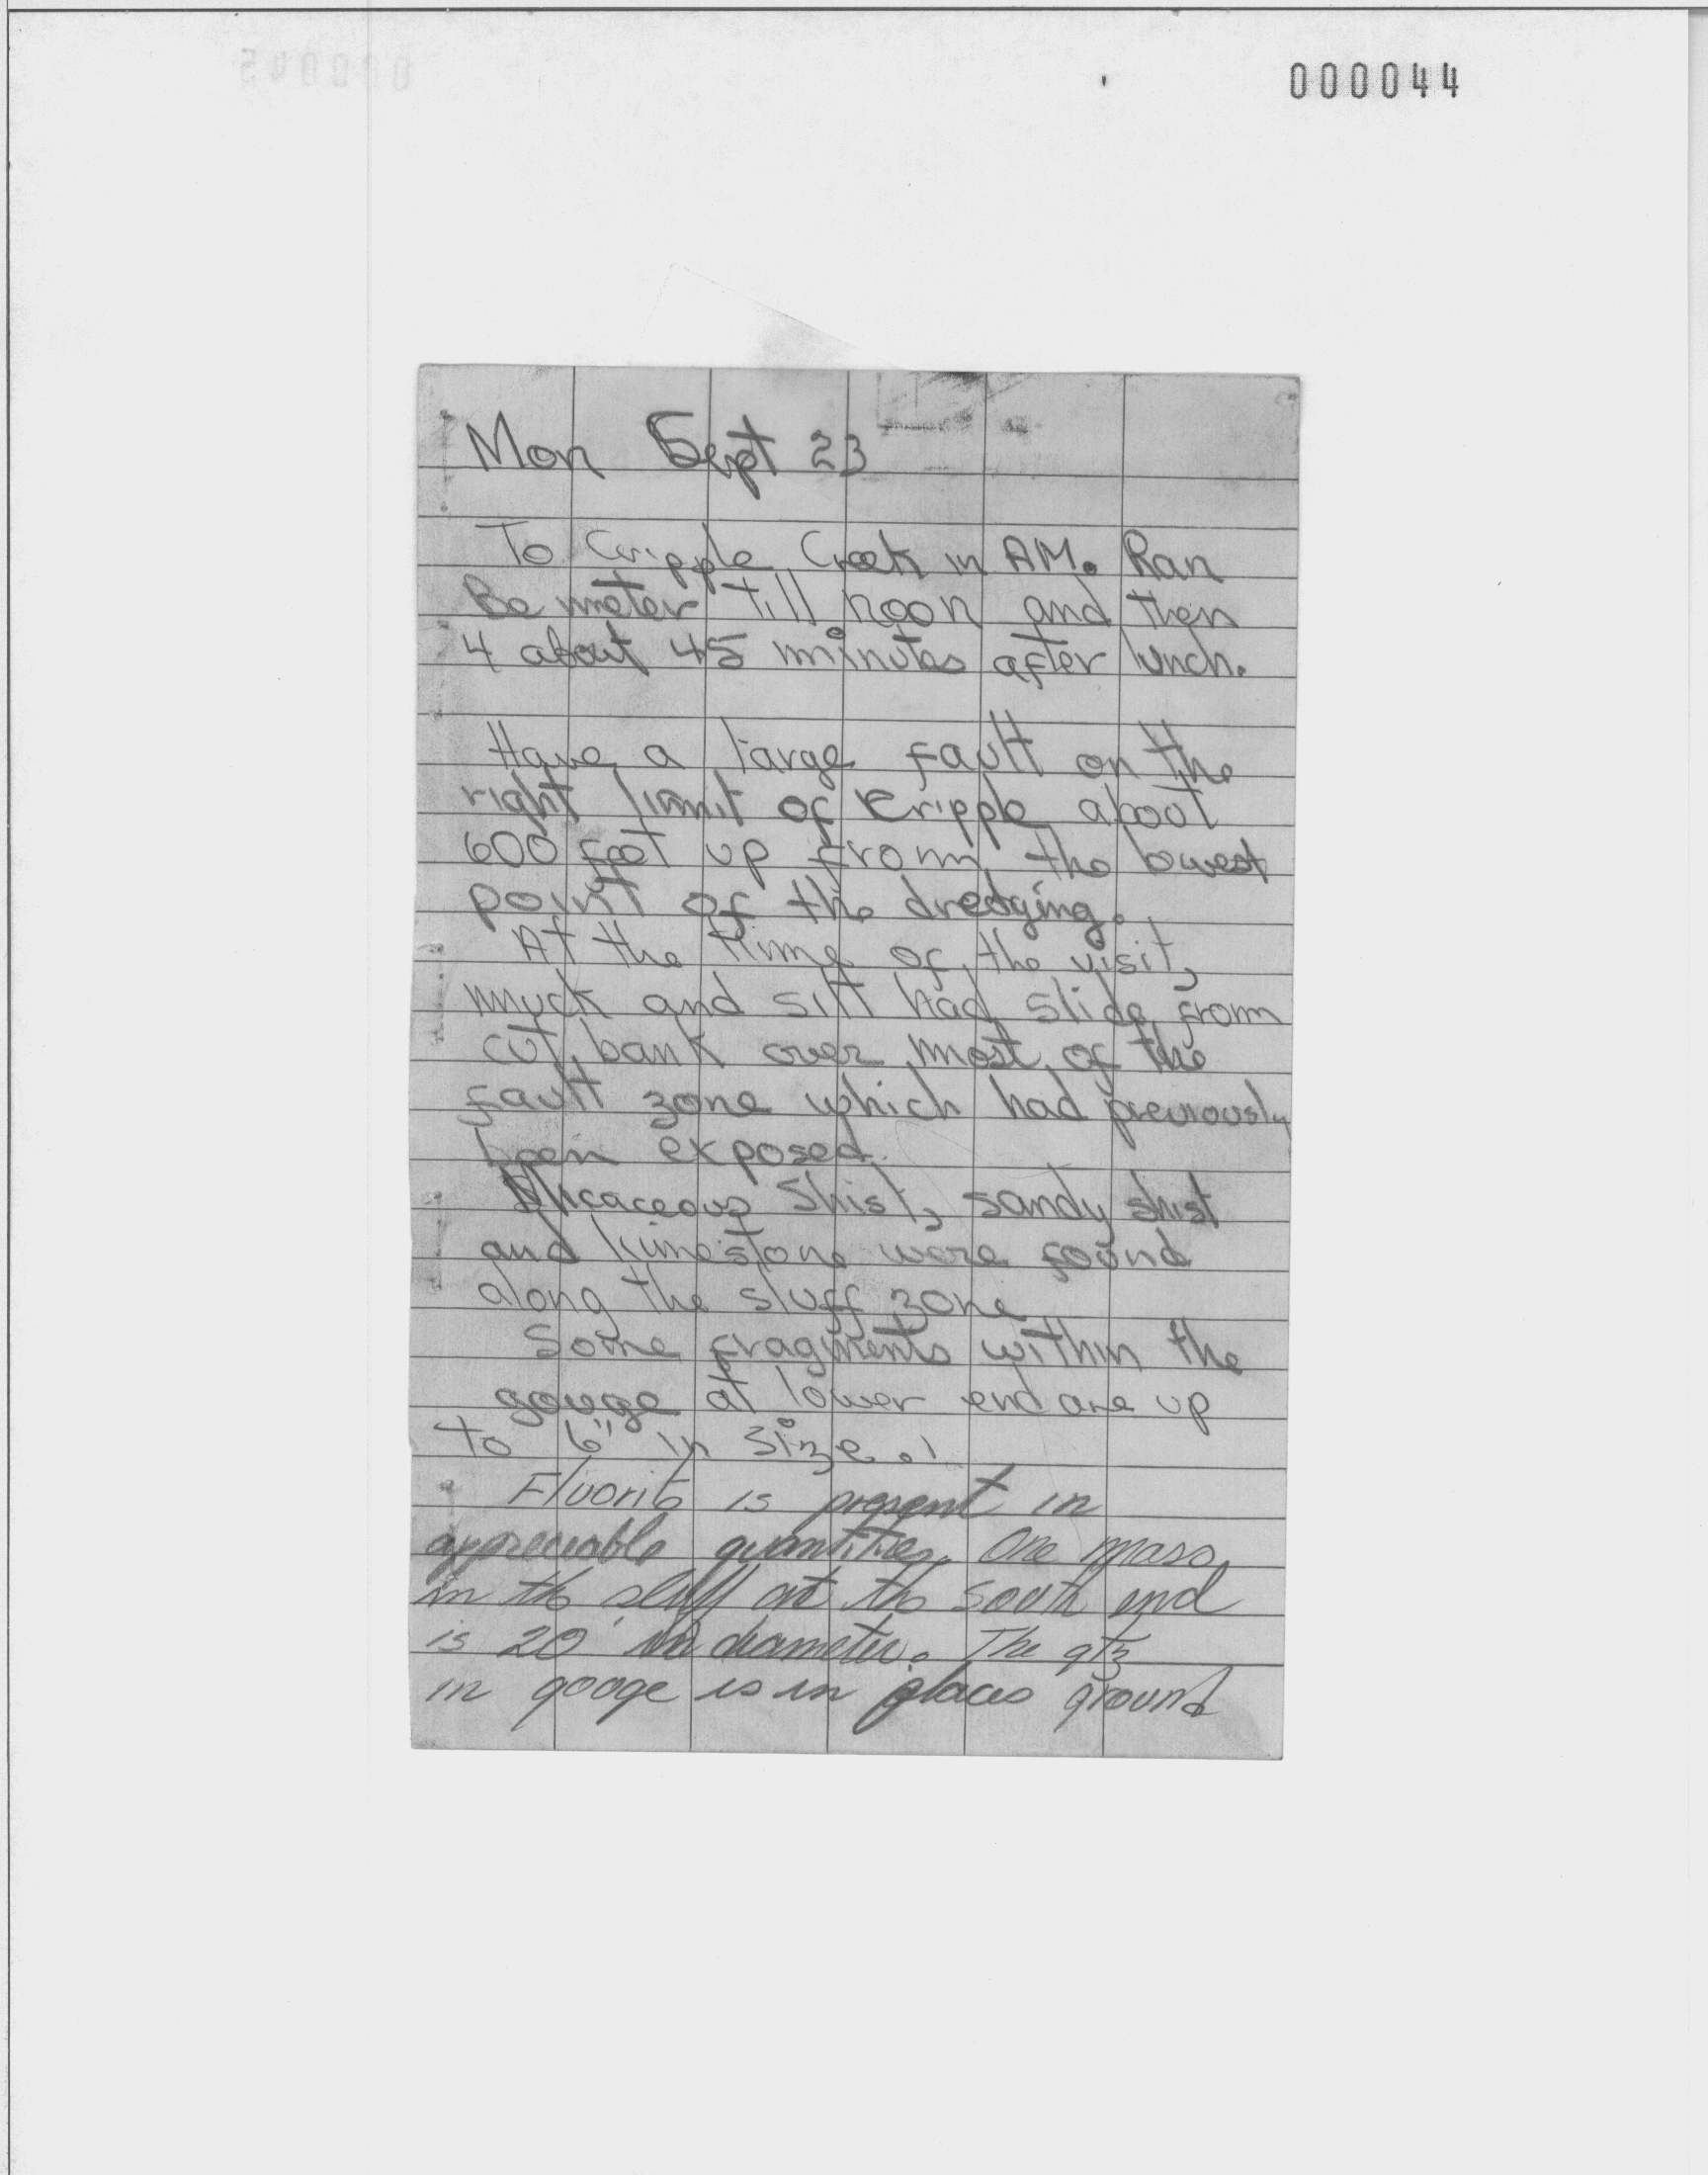 000044
Mon Sept 23
To Cripple Creek in AM. Ran
Be meter till noon and then
4 about 45 minutes after lunch.
Have a large fault on the
right limit of Cripple about
600 feet up from the lowest
point of the dredging.
At the time of the visit,
muck and silt had slide from
cut bank over most of the
fault zone which had previously
been exposed.
Micaceous Shist, sandy shist
and limestone were found
along the sluff zone
Some fragments within the
gouge at lower end are up
to 6" in size.
Fluorite is present in
appreciable quantities. One mass
in the sluff at the south end
is 20' in diameter. The qtz
in googe is in places ground